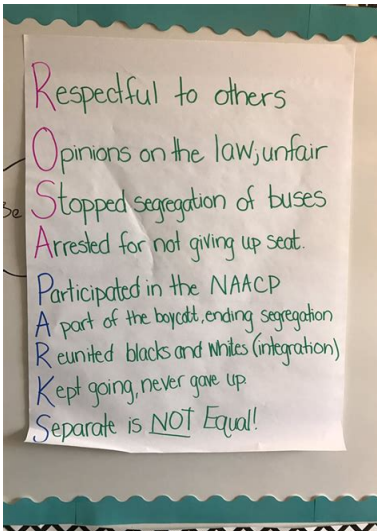 Respectful to others
Opinions on the law; unfair
Stopped segregation of buses
Be
Arrested for not giving up seat.
Participated in the NAACP
A part of the boycott, ending segregation
Reunited blacks and whites (integration)
Kept going, never gave up.
Separate is NOT Equal!